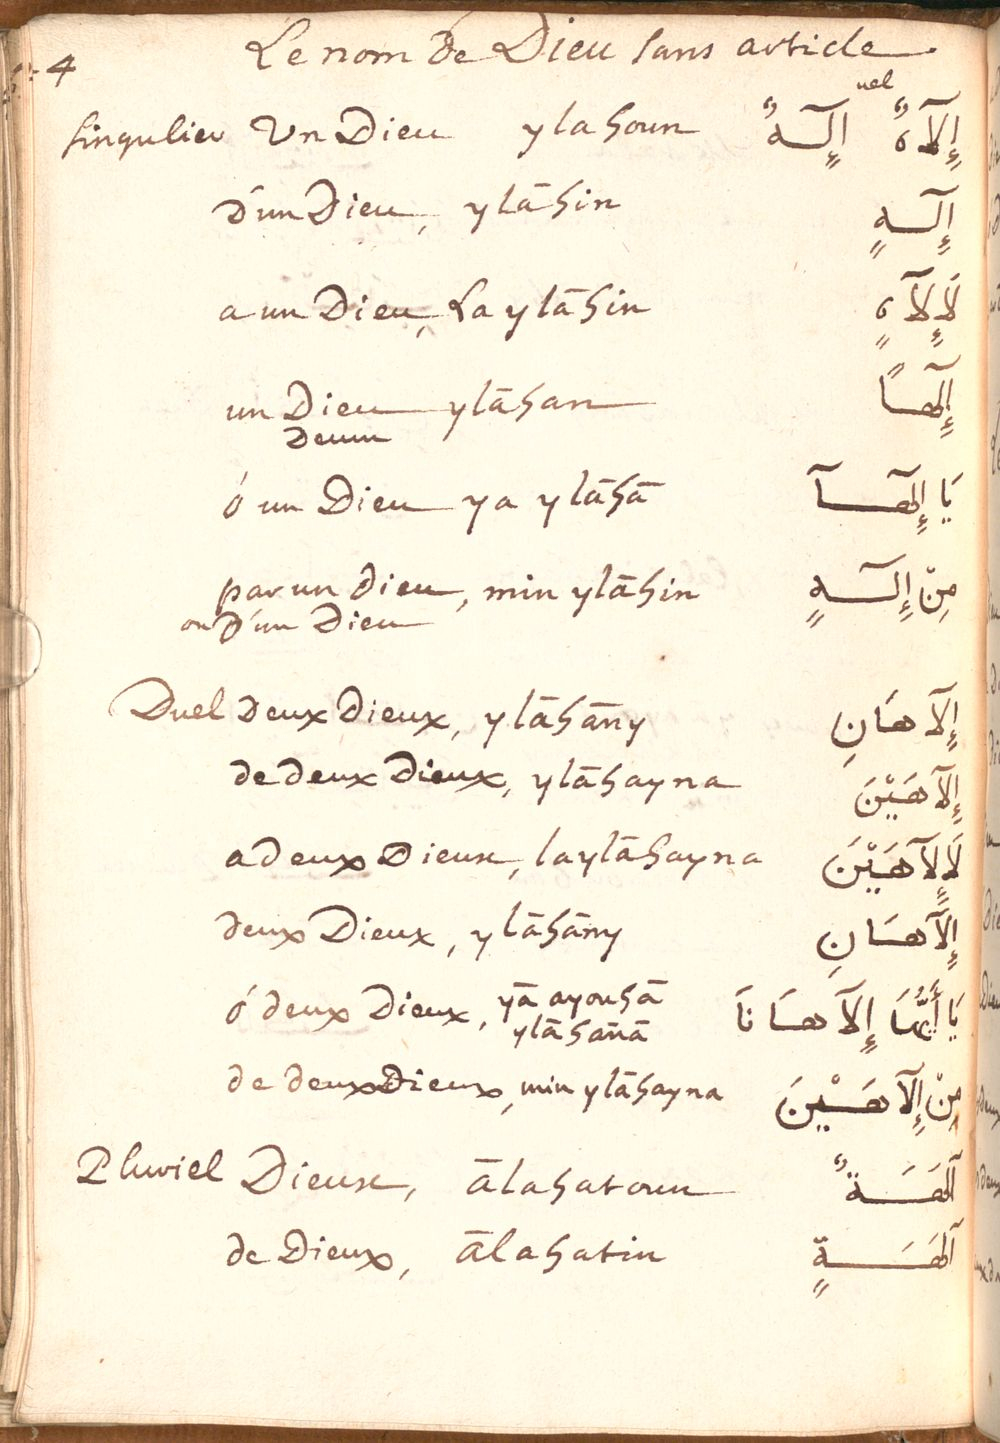 4
Le nom de Dieu sans article
singulier Un Dieu ylahoun إِلَآهٌ uel إِلَـهٌ
d'un Dieu, ylāhin إِلَـهٍ
a un Dieu, La ylāhin لَإِلَآهٍ
un Dieu ylāhan إِلَهًا
deum
ó un Dieu ya ylāhā يَا إِلَهَآ
par un dieu, min ylāhin مِنْ إِلَـهٍ
ou d'un Dieu
Duel deux dieux, ylāhāny إِلَآهَانِ
de deux Dieux, ylāhayna إِلَآهَيْنَ
a deux Dieux, laylāhayna لَإِلَآهَيْنَ
deux Dieux, ylāhāny إِلَآهَانِ
ó deux Dieux, yā ayouhā يَا أَيُّهَا إِلَآهَانَا
ylāhānā
de deux Dieux, min ylāhayna مِنْ إِلَآهَيْنَ
Pluriel Dieux, ālahatoun آلَهَةٌ
de Dieux, ālahatin آلَهَةٍ